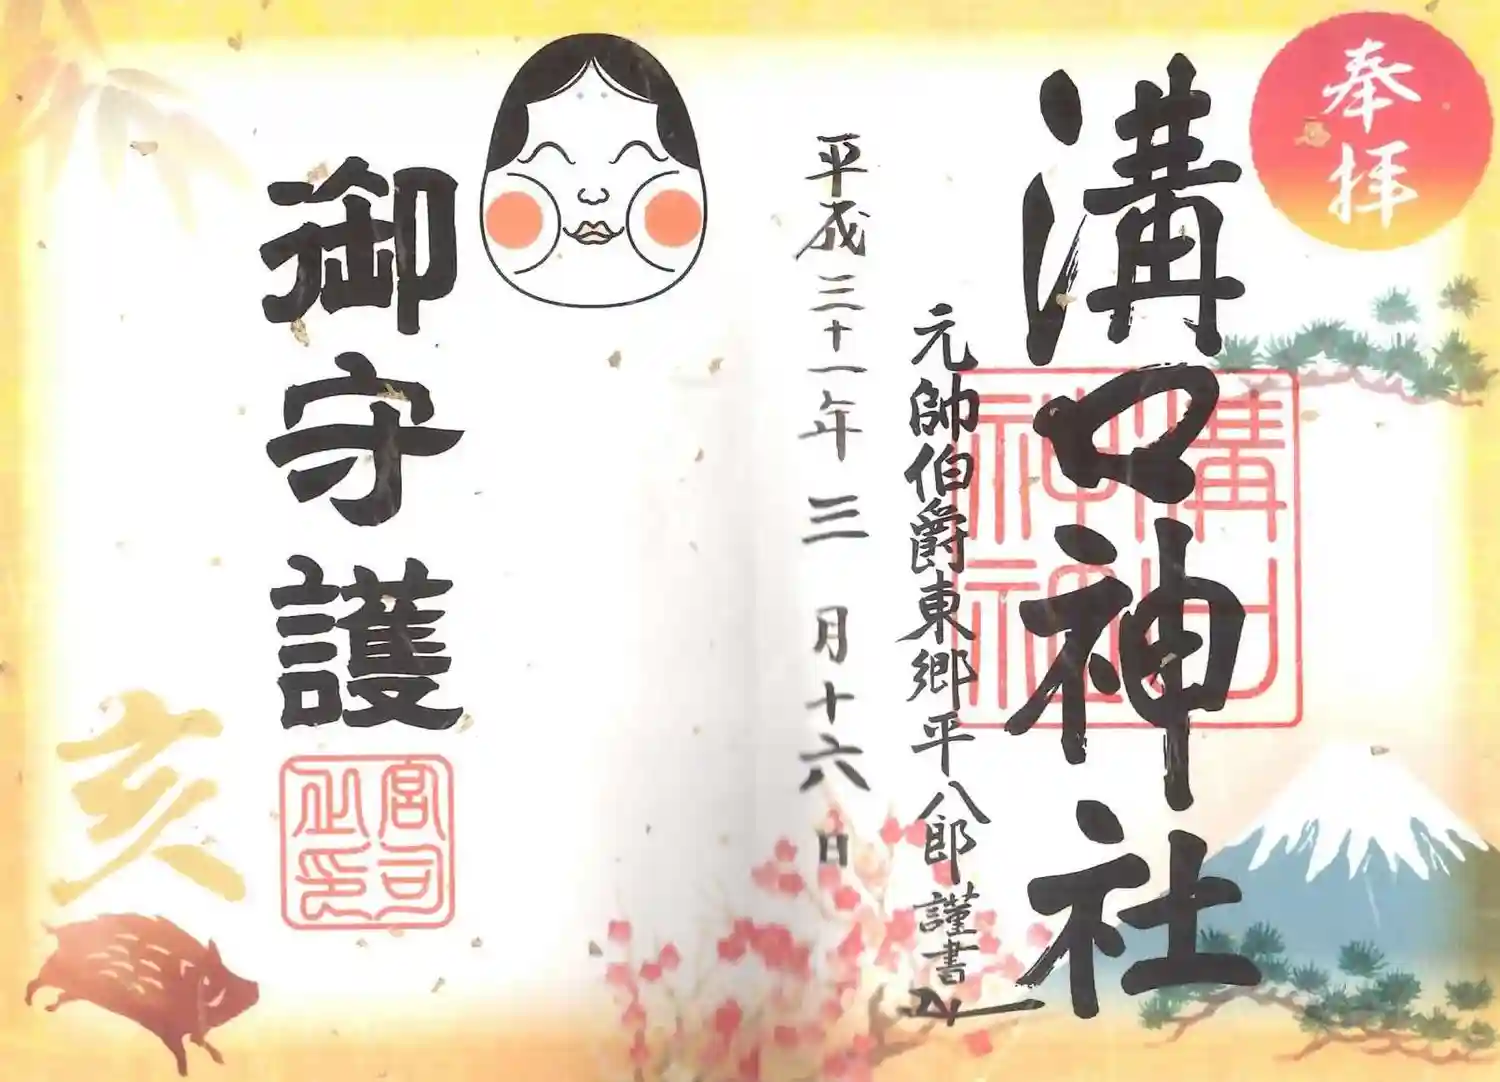 奉拝
溝口神社
溝口神社神社
元帥伯爵東郷平八郎謹書
平成三十一年三月十六日
御守護
宮司之印
亥